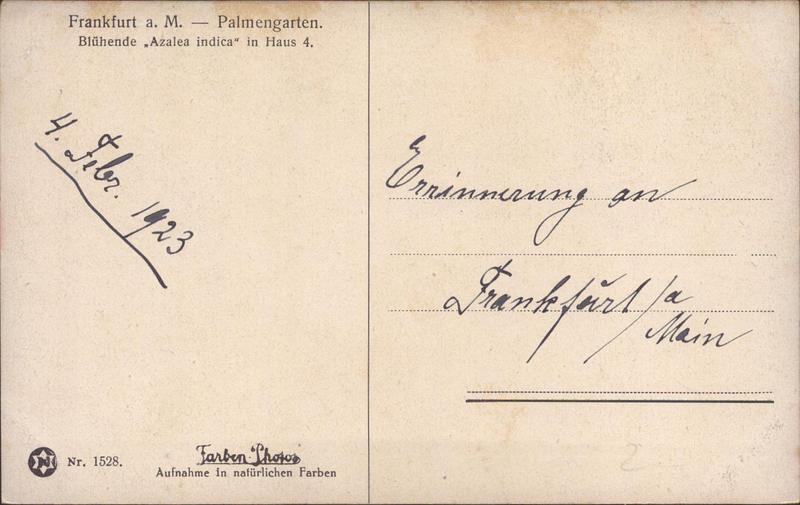 Frankfurt a. M. — Palmengarten.
Blühende „Azalea indica“ in Haus 4.
4. Febr. 1923
Errinnerung an
Frankfurt/a
Main
Nr. 1528.
Farben-Photos
Aufnahme in natürlichen Farben